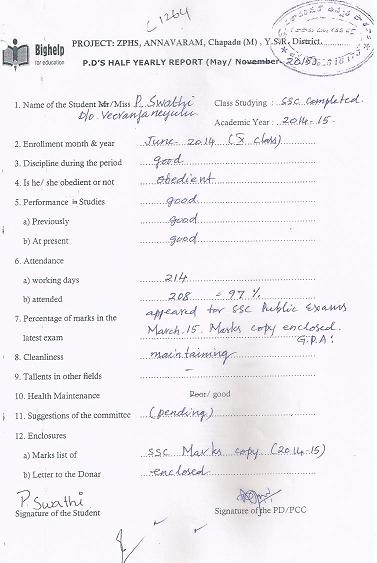 C1264
Bighelp
for education
PROJECT: ZPHS, ANNAVARAM, Chapadu (M) , Y.S.R. District.
P.D'S HALF YEARLY REPORT (May/ November 2015)
1. Name of the Student Mr/Miss P. Swathi
D/o Veeranjaneyulu
Class Studying : SSC completed.
Academic Year : 2014-15.
2. Enrollment month & year June-2014 (X class)
3. Discipline during the period good
4. Is he/ she obedient or not obedient
5. Performance in Studies good
a) Previously good
b) At present good
6. Attendance
a) working days 214
b) attended 208 = 97 %
7. Percentage of marks in the appeared for SSC Public Exams
latest exam March.15. Marks copy enclosed.
G.P.A:
8. Cleanliness maintaining
9. Tallents in other fields –
10. Health Maintenance Poor/ good
11. Suggestions of the committee (pending)
12. Enclosures
a) Marks list of SSC Marks copy (2014-15)
b) Letter to the Donar enclosed
P. Swathi
Signature of the Student
Signature of the PD/PCC